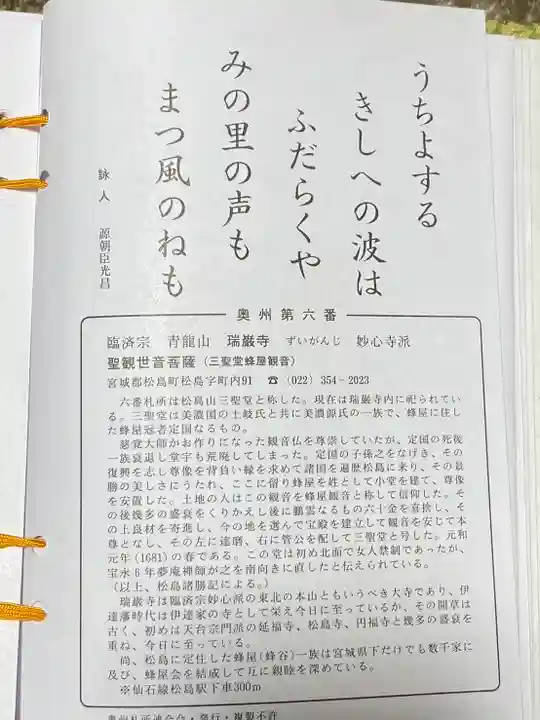 うちよする
きしへの波は
ふだらくや
みの里の声も
まつ風のねも
詠人　源朝臣光昌
奥州第六番
臨済宗　青龍山　瑞巌寺　ずいがんじ　妙心寺派
聖観世音菩薩（三聖堂蜂屋観音）
宮城郡松島町松島字町内91　☎（022）354−2023
六番札所は松島山三聖堂と称した。現在は瑞巌寺内に祀られてい
る。三聖堂は美濃国の土岐氏と共に美濃源氏の一族で、蜂屋に住し
た蜂屋冠者定国なるもの。
慈覚大師がお作りになった観音仏を尊崇していたが、定国の死後
一族衰退し堂宇も荒廃してしまった。定国の子孫之をなげき、その
復興を志し尊像を背負い縁を求めて諸国を遍歴松島に来り、その景
勝の美しさにうたれ、ここに留り蜂屋を姓として小堂を建て、尊像
を安置した。土地の人はこの観音を蜂屋観音と称して信仰した。そ
の後幾多の盛衰をくりかえし後に鵬雲なるもの六十金を喜捨し、そ
の上良材を寄進し、今の地を選んで宝殿を建立して観音を安じて本
尊となし、その左に達磨、右に管公を配して三聖堂と号した。元和
元年（1681）の春である。この堂は初め北面で女人禁制であったが、
宝永6年夢庵禅師が之を南向きに直したと伝えられている。
（以上、松島諸勝記による。）
瑞巌寺は臨済宗妙心派の東北の本山ともいうべき大寺であり、伊
達藩時代は伊達家の寺として栄え今日に至っているが、その開草は
古く、初めは天台宗門派の延福寺、松島寺、円福寺と幾多の盛衰を
重ね、今日に至っている。
尚、松島に定住した蜂屋（蜂谷）一族は宮城県下だけでも数千家に
及び、蜂屋会を結成して互に親睦を深めている。
※仙石線松島駅下車300m
奥州札所連合会・発行・複製不許